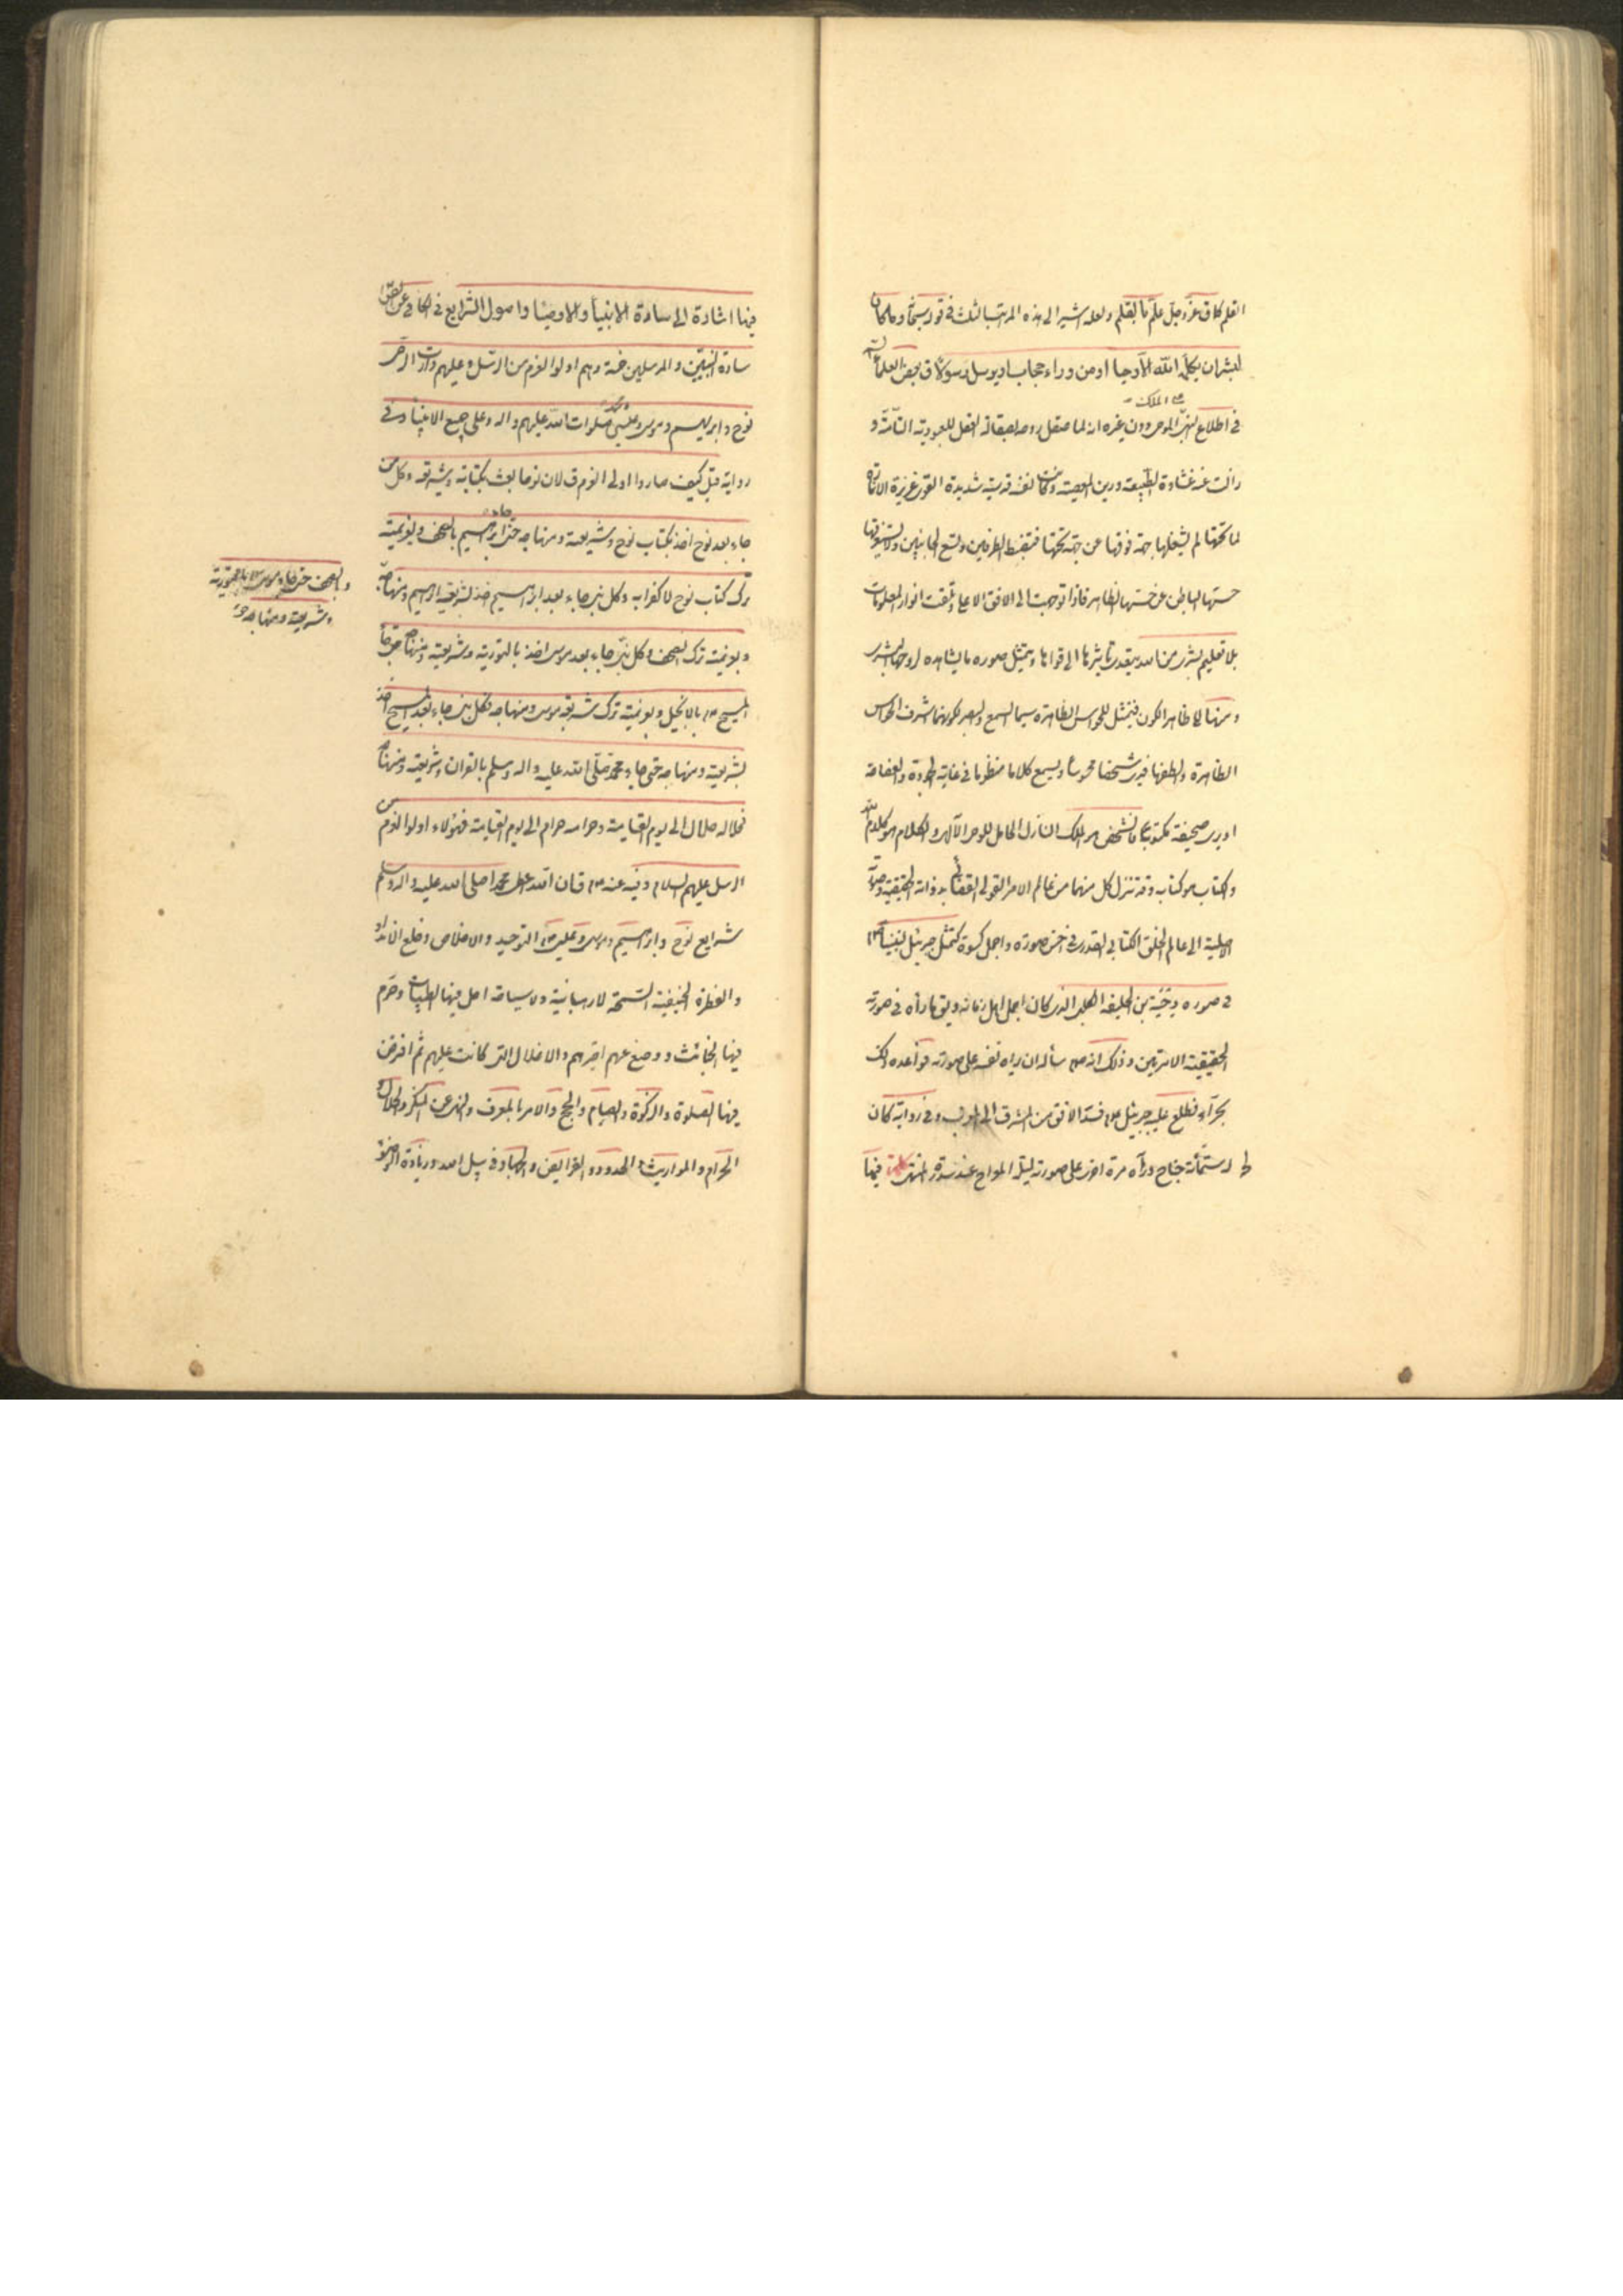 القلم كما ق عز وجل علم بالقلم ولعله اشير الى هذه المراتب الثلث فى قوله سبحانه وما كان
لبشر ان يكلمه الله الا وحيا او من وراء حجاب او يرسل رسولا ق بعض العلماء
فى اطلاع النبى على الملك الموحى دون غيره انه لما صقل روحه بصقالة العقل للعبودية التامة و
زالت عنه غشاوة الطبيعة ورين المعصية وكانت نفسه قدسية شديدة القوى عزيزة الانارة
لما تحتها لم يشغلها جهة فوقها عن جهة تحتها فتضبط الطرفين وتسع الجانبين ولا يستغرقها
حسها الباطن عن حسها الظاهر فاذا توجهت الى الافق الاعلى وتلقت انوار المعلومات
بلا تعليم بشرى من الله يتعدى تأثيرها الى قواها ويتمثل صورة ما يشاهده لروحها البشرى
ومنها الى ظاهر الكون فيتمثل للحواس الظاهرة سيما السمع والبصر لكونهما اشرف الحواس
الظاهرة والطفها فيرى شخصا محسوسا ويسمع كلاما منظوما فى غاية الجودة والفصاحة
او يرى صحيفة مكتوبة فالشخص هو الملك النازل الحامل للوحى الالهى والكلام هو كلام الله
والكتاب هو كتابه وقد تنزل كل منهما من عالم الامر القولى القضائى بذاته الحقيقية وصورته
الاصلية الى عالم الخلق الكتابى القدرى فى احسن صورة واجمل كسوة كتمثل جبرئيل لنبينا ص
فى صورة دحية بن خليفة الكلبى الذى كان اجمل اهل زمانه ويق ما رآه فى صورته
الحقيقية الا مرتين وذلك انه ص سأله ان يراه نفسه على صورته فواعده ذلك
بحراء فطلع عليه جبرئيل ع فسد الافق من المشرق الى المغرب وفى رواية كان
له ستمأة جناح ورآه مرة اخرى على صورته ليلة المعراج عند سدرة المنتهى كلمة فيها
فيها اشارة الى سادة الانبياء والاوصياء واصول الشرايع فى الكافى عن الصادق
سادة النبيين والمرسلين خمسة وهم اولوا العزم من الرسل وعليهم دارت الرحى
نوح وابراهيم وموسى وعيسى ومحمد صلوات الله عليهم واله وعلى جميع الانبياء وفى
رواية قيل كيف صاروا اولى العزم ق لان نوحا بعث بكتابه وشريعته وكل من
جاء بعد نوح اخذ بكتاب نوح وشريعته ومنهاجه حتى جاء ابراهيم بالصحف وبعزيمة
ترك كتاب نوح لا كفرا به وكل نبى جاء بعد ابراهيم اخذ بشريعة ابراهيم ومنهاجه
وبالصحف حتى جاء موسى ع بالتورية
وشريعته ومنهاجه
وبعزيمة ترك الصحف وكل نبى جاء بعد موسى اخذ بالتورية وشريعته ومنهاجه حتى جاء
المسيح ع بالانجيل وبعزيمة ترك شريعة موسى ومنهاجه فكل نبى جاء بعد المسيح اخذ
بشريعته ومنهاجه حتى جاء محمد صلى الله عليه واله وسلم بالقران وشريعته ومنهاجه
فحلاله حلال الى يوم القيامة وحرامه حرام الى يوم القيامة فهؤلاء اولوا العزم من
الرسل عليهم السلام وفيه عنه ع قال ان الله اعطى محمدا صلى الله عليه واله وسلم
شرايع نوح وابراهيم وموسى وعيسى ع التوحيد والاخلاص وخلع الانداد
والفطرة الحنيفية السمحة لا رهبانية ولا سياحة احل فيها الطيبات وحرم
فيها الخبائث ووضع عنهم اصرهم والاغلال التى كانت عليهم ثم افترض
فيها الصلوة والزكوة والصيام والحج والامر بالمعروف والنهى عن المنكر والحلال و
الحرام والمواريث والحدود والفرايض والجهاد فى سبيل الله وزيادة الوضوء